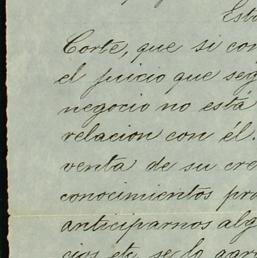 Esta
Corte, que si con
el juicio que seg
negocio no está
relacion con él.
venta de su cre
conocimientos pro
anticiparnos alg
cios etc se lo agra